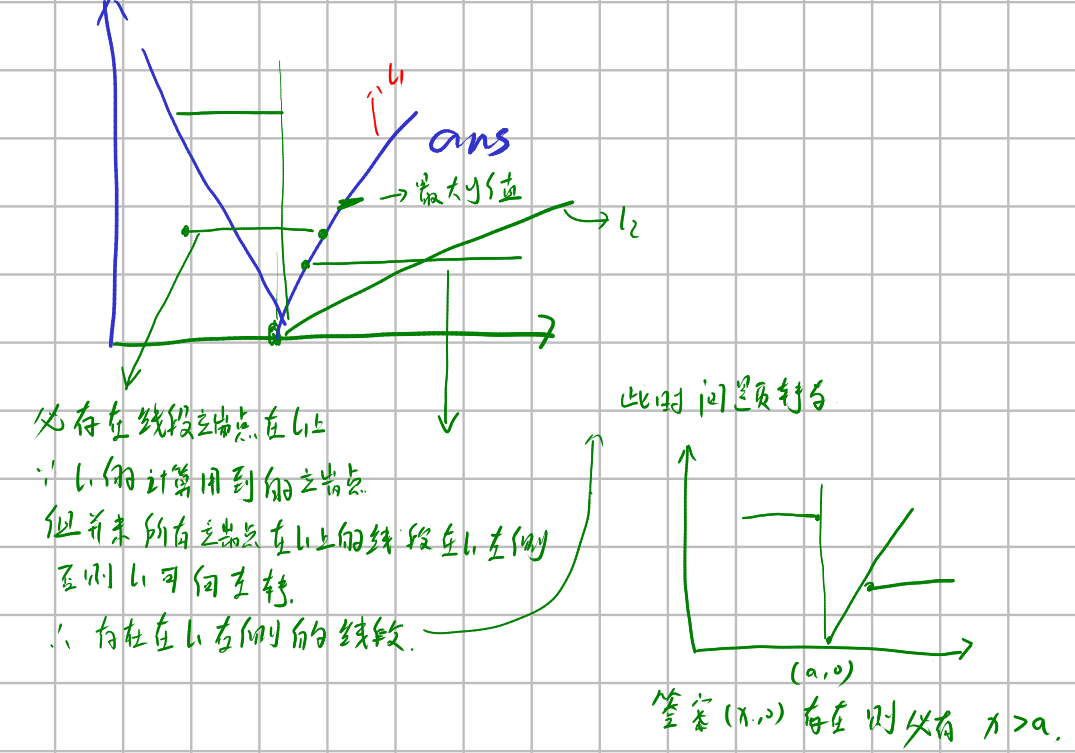 l₁
ans
→最大y值
l₂
必存在线段端点在l₁上
∵ l₁的计算用到的端点
但并未所有端点在l₁上的线段在l₁左侧
否则l₁可向左转.
∴ 存在在l₁右侧的线段.
此时问题转为
(a,0)
答案(x,0)存在则必有 x>a.